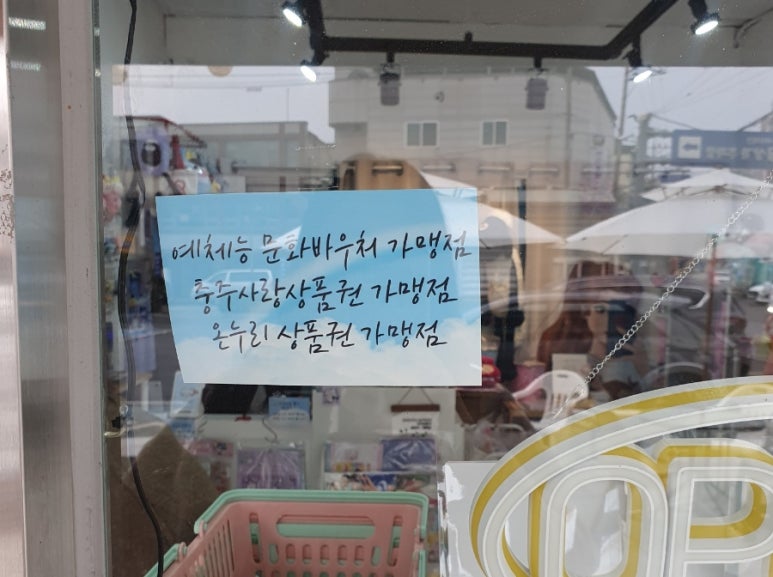 예체능 문화바우처 가맹점
충주사랑상품권 가맹점
온누리 상품권 가맹점
OP